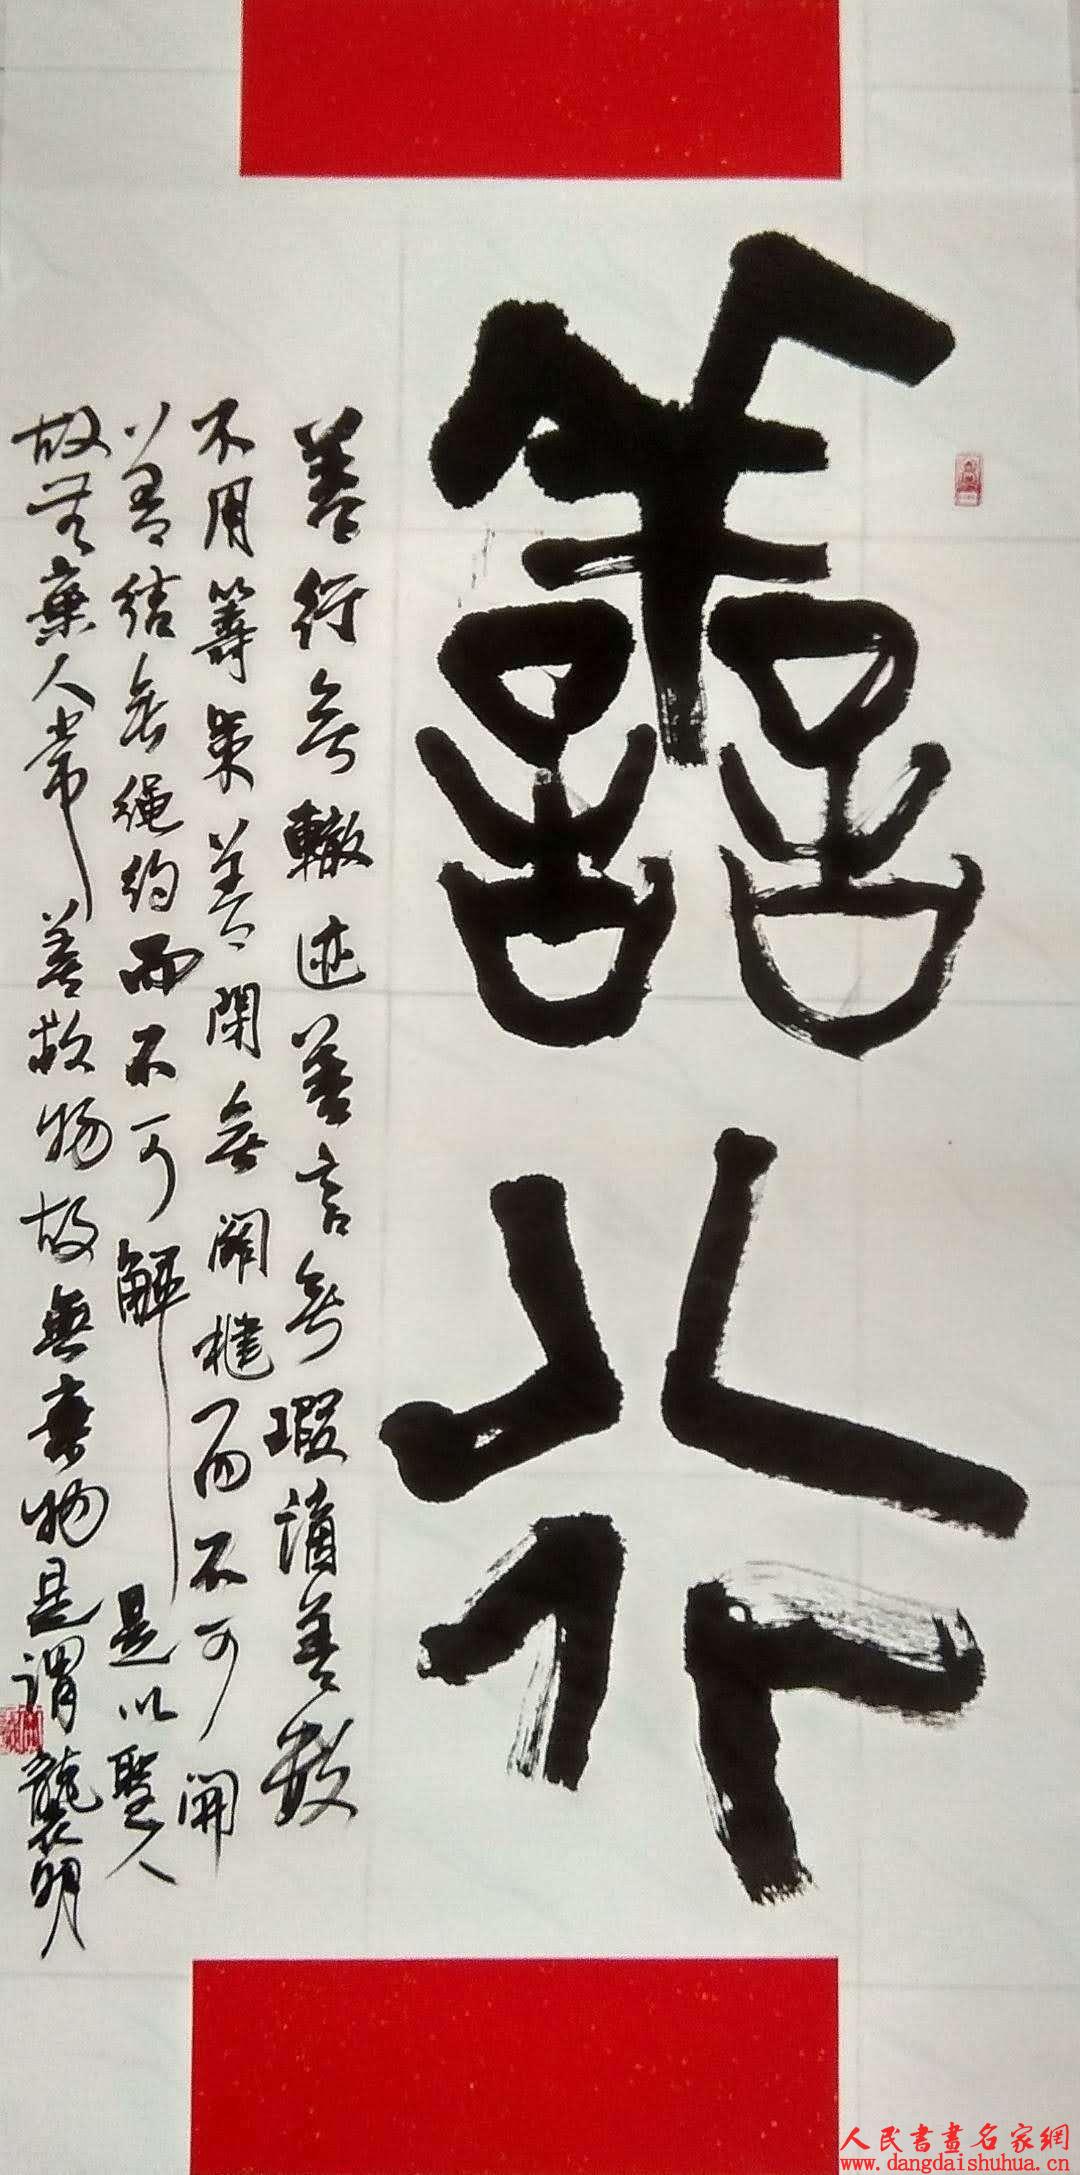 譱行
善行無轍迹善言無瑕謫善數
不用籌策善閉無關楗而不可開
善結無繩約而不可解是以聖人
故无棄人常善救物故無棄物是謂襲明
人民書畫名家網
www.dangdaishuhua.cn